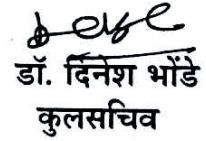 डॉ. दिनेश भोंडे
कुलसचिव